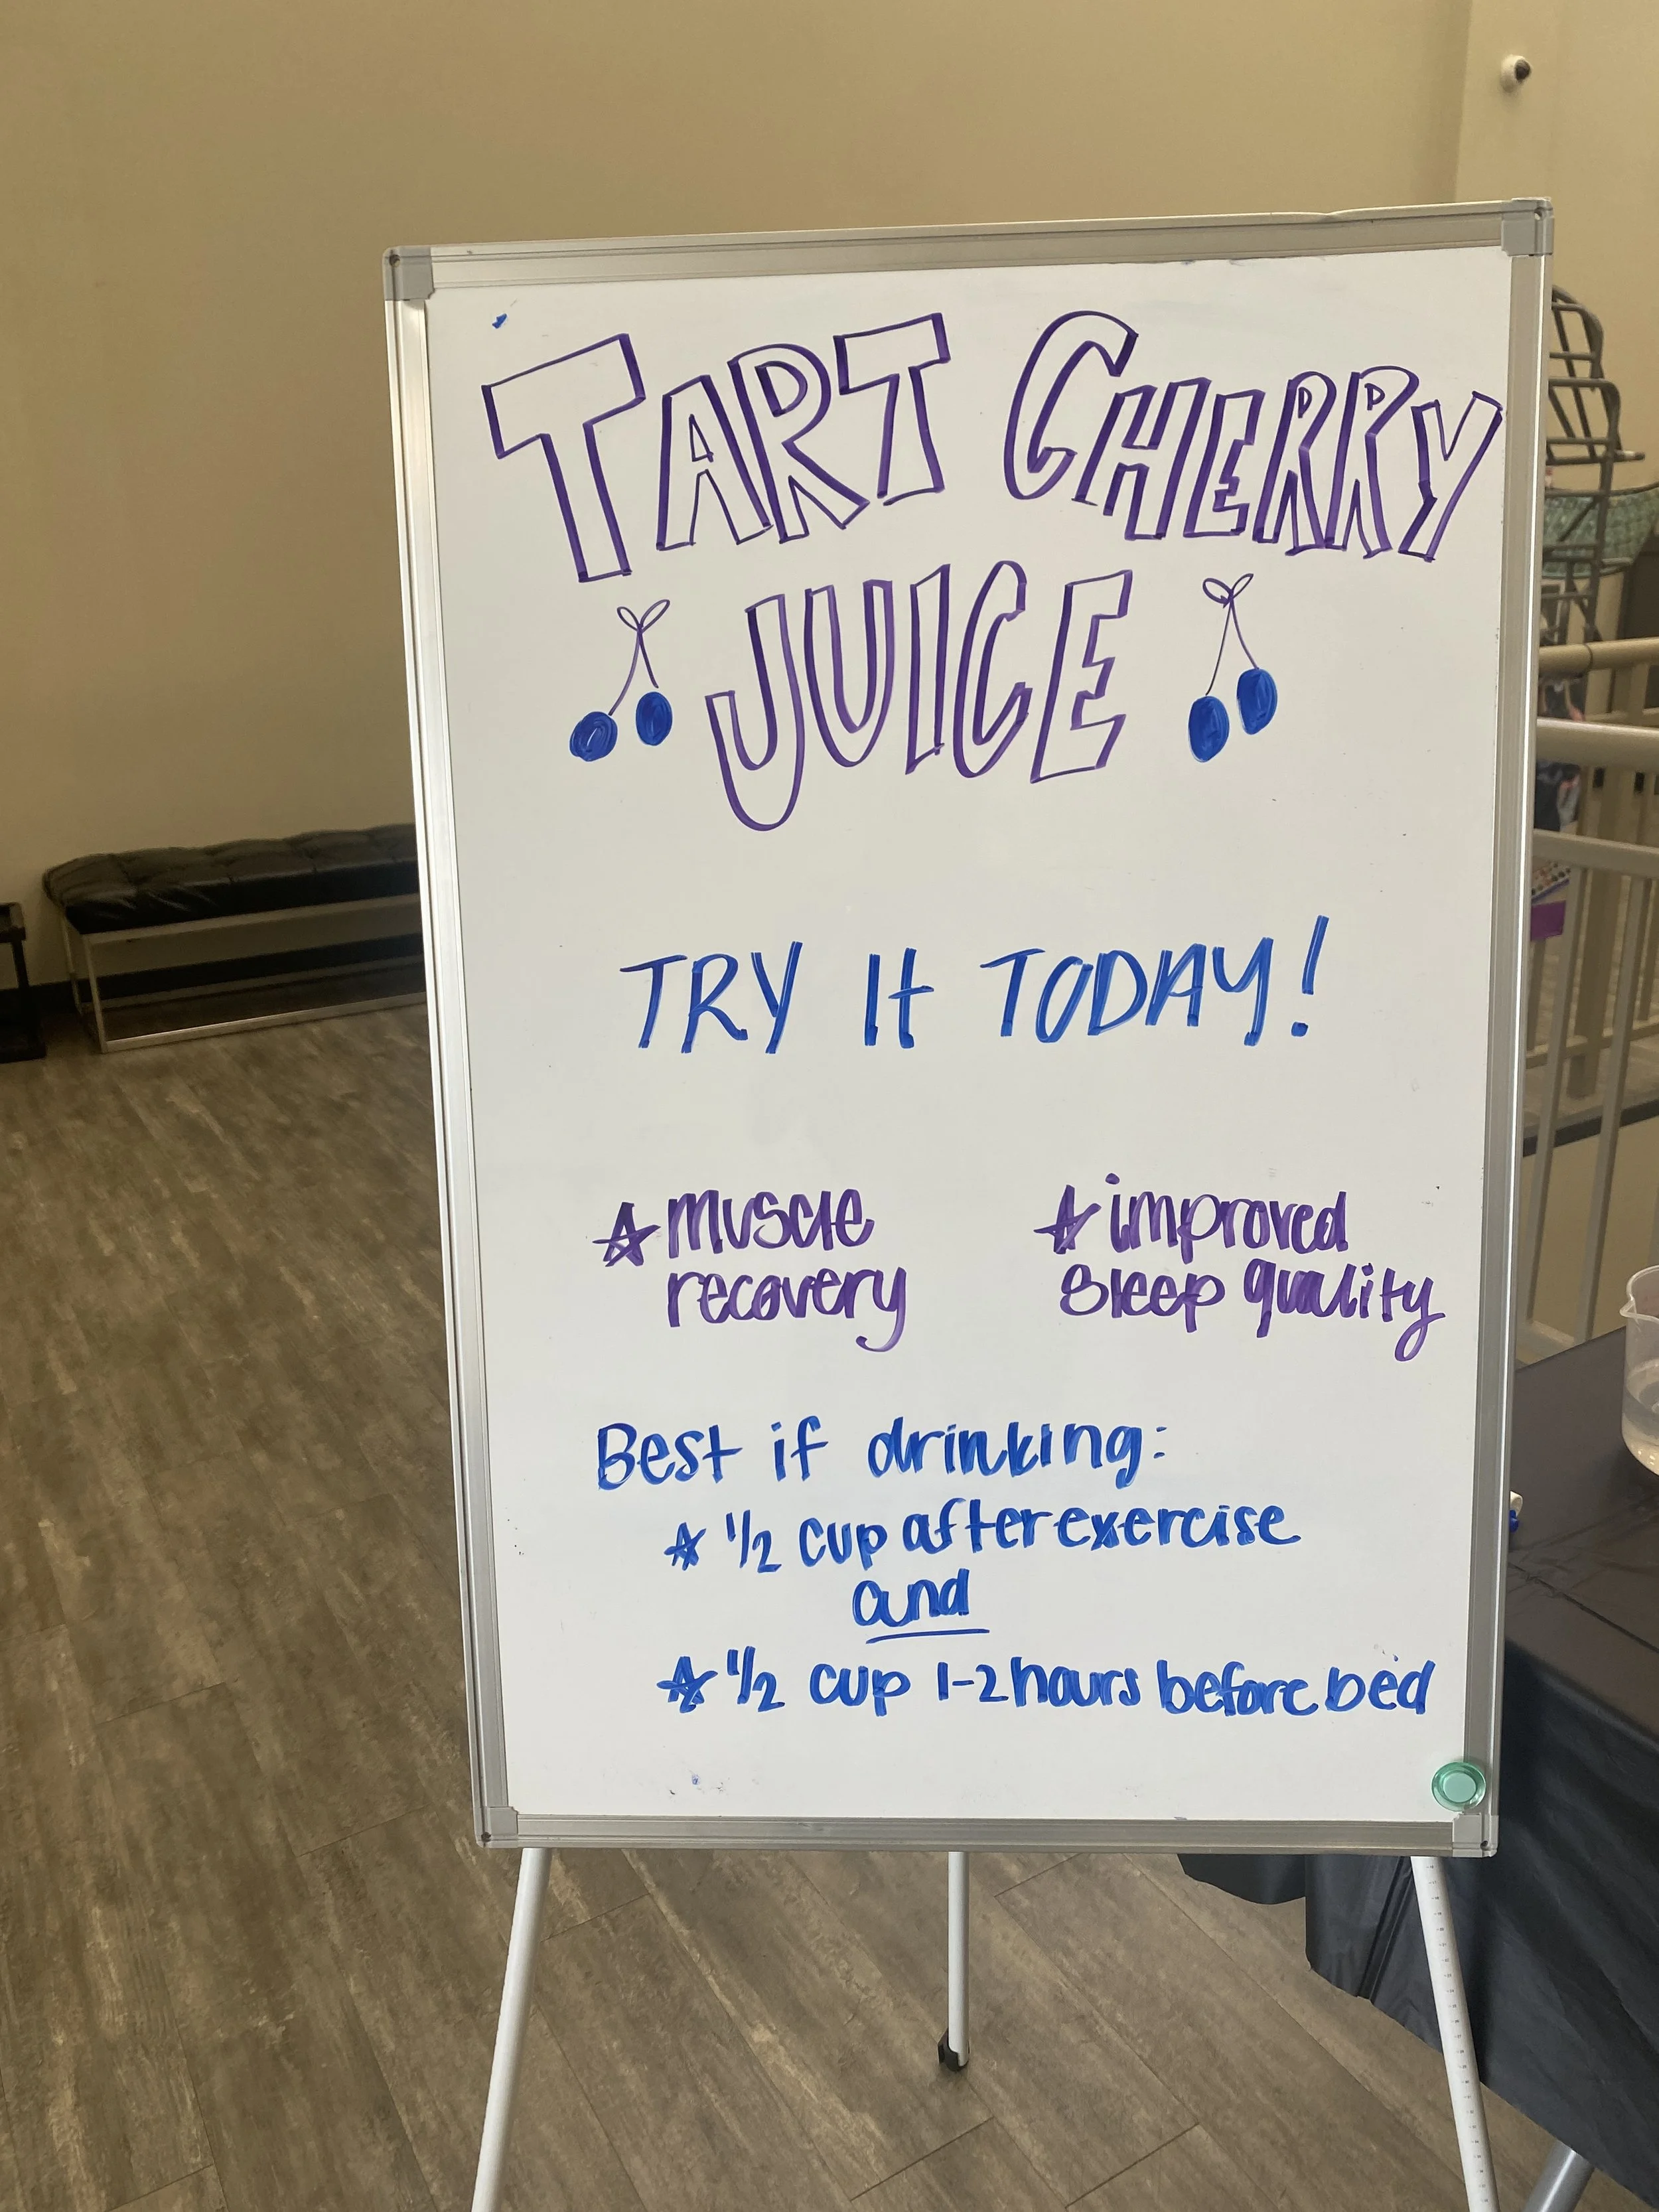 TART CHERRY
JUICE
TRY It TODAY!
muscle
recovery
improved
sleep quality
Best if drinking:
1/2 cup after exercise
and
1/2 cup 1-2 hours before bed